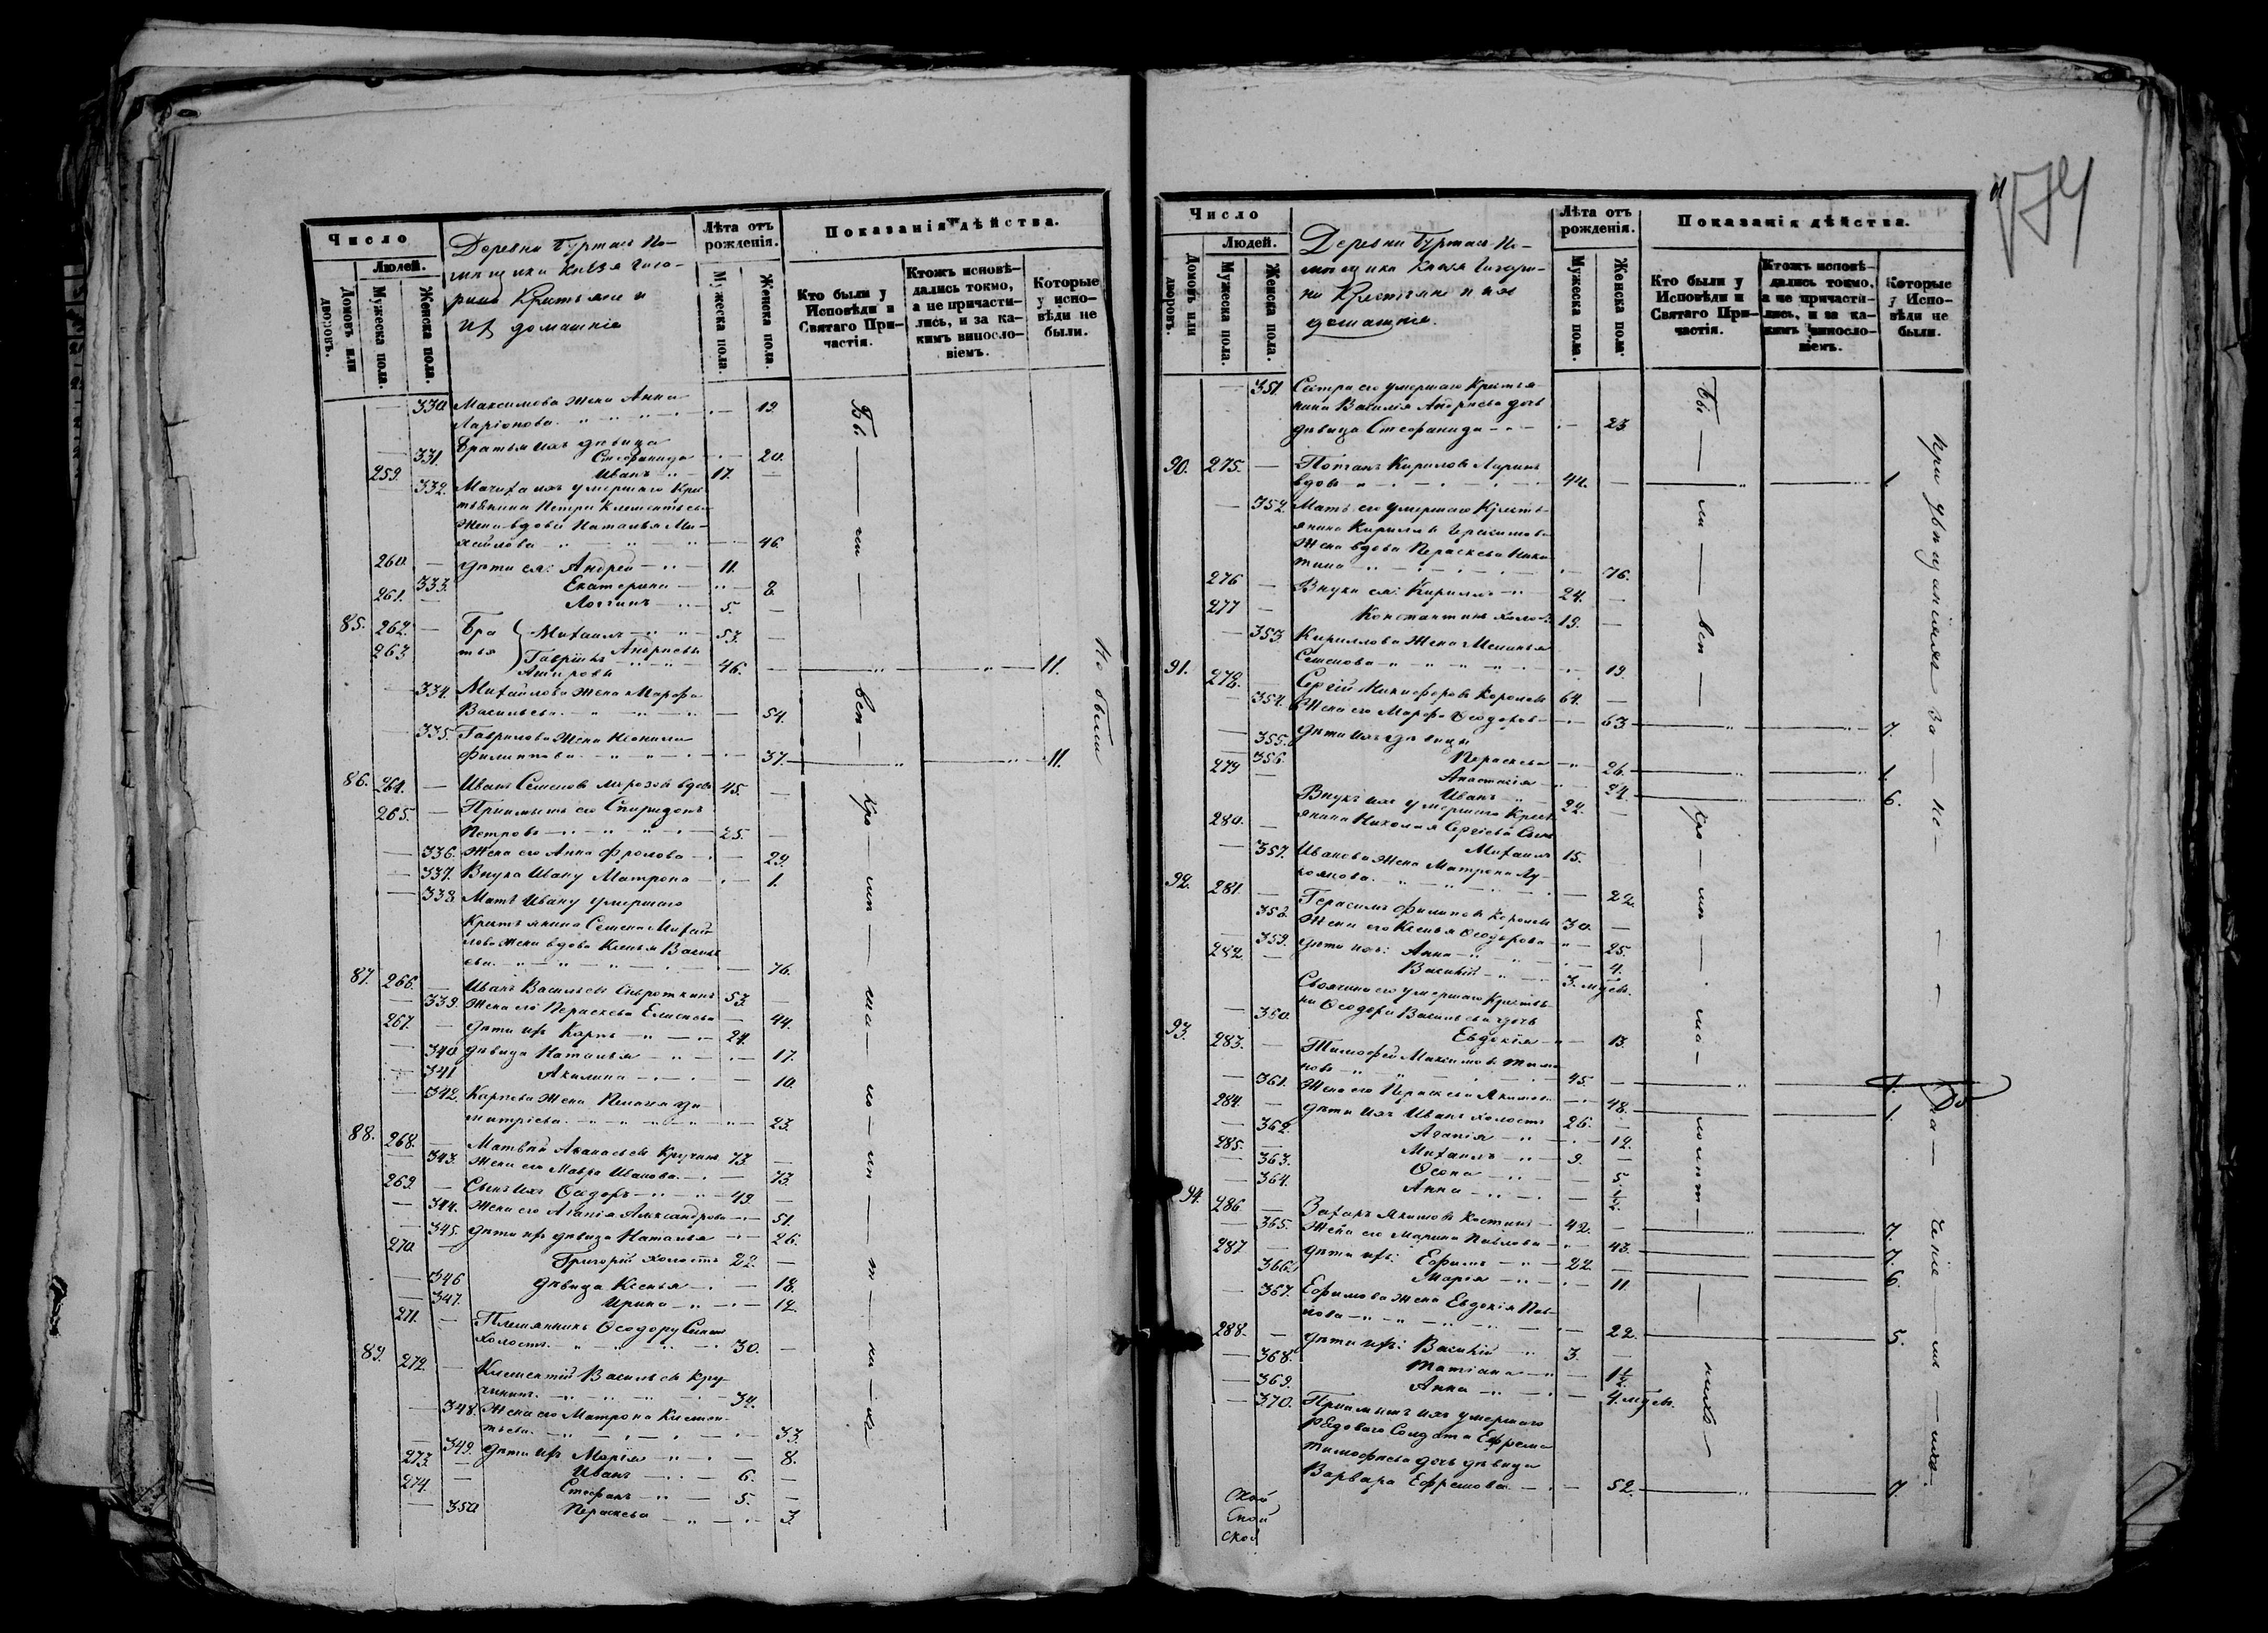 Число
Людей.
Домовъ или дворовъ.
Мужеска пола.
Женска пола.
Деревни Буртасъ По-
мѣщика Князя Гага-
рина Крестьяне и
ихъ домашніе
Лѣта отъ рожденія.
Мужеска пола.
Женска пола.
Показанія дѣйства.
Кто были у Исповѣди и Святаго При-частія.
Ктожъ исповѣ-дались токмо, а не причасти-лись, и за ка-кимъ виносло-віемъ.
Которые у испо-вѣди не были.
330. Максимова жена Анна
Ларіонова 19.
331. Братья ихъ дѣвица
Стефанида 20.
259. Иванъ 17.
332. Мачиха ихъ умершаго Кре-
стьянина Петра Клементьева
жена вдова Наталья Ми-
хайлова 46.
260. дѣти ея: Андрей 11.
333. Екатерина 8.
261. Логгинъ 5.
85. 262. Бра Михаилъ 53.
263 тья Гаврiилъ Андреевы 46. 11.
334. Михайлова жена Марфа
Васильева 54.
335. Гаврилова жена Неонила
Филиппова 37. 11.
86. 264. Иванъ Семеновъ Морозовъ вдовъ 45.
265. Пріимышъ его Спиридонъ
Петровъ 25.
336. Жена его Анна Фролова 29.
337. Внука Ивану Матрона 1.
338. Мать Ивану умершаго
Крестьянина Семена Михай-
лова жена вдова Ксенья Василь
ева 76.
87. 266. Иванъ Васильевъ Сыроткинъ 53.
339. Жена его Параскева Елисеева 44.
267. дѣти ихъ Карпъ 24.
340 дѣвица Наталья 17.
341 Акилина 10.
342. Карпова жена Пелагея Ди-
митріева 23.
88. 268. Матвѣй Аѳанасьевъ Кручинъ 73.
343. Жена его Мавра Иванова 73.
269. Сынъ ихъ Ѳеодоръ 49
344. Жена его Агапія Александрова 51.
345. дѣти ихъ дѣвица Наталья 26.
270 Григорій холостъ 22.
346 дѣвица Ксенья 18.
347. Ирина 12.
271. Племянникъ Ѳеодору
холостъ. 30.
89. 272. Климентій Васильевъ Кру-
чининъ. 34.
348. Жена его Матрона Климен-
тьева 33.
349. дѣти ихъ Марія 8.
273. Иванъ 6.
274. Стефанъ 5.
350 Параскева 3.
Не были
Число
Людей.
Домовъ или дворовъ.
Мужеска пола.
Женска пола.
Деревни Буртасъ По-
мѣщика Князя Гагари-
на Крестьяне и ихъ
домашніе.
Лѣта отъ рожденія.
Мужеска пола.
Женска пола.
Показанія дѣйства.
Кто были у Исповѣди и Святаго При-частія.
Ктожъ исповѣ-дались токмо, а не причасти-лись, и за ка-кимъ виносло-віемъ.
Которые у Испо-вѣди не были.
351. Сестра его умершаго Крестья-
нина Василія Андреева дочь
дѣвица Стефанида 23
90. 275. Потапъ Кириловъ Ларинъ
вдовъ 44. 1.
352. Мать его умершаго Кресть-
янина Кирилла Герасимова
Жена вдова Параскева Ники
тина 76.
276 Внуки ея: Кириллъ 24.
277 Константинъ холостъ 19.
353. Кириллова Жена Меланья
Семенова 19.
91. 278. Сергій Никифоровъ Королевъ 64.
354. Жена его Марфа Ѳеодорова 63 7.
355. дѣти ихъ дѣвицы
Параскева 26. 1.
356. Анастасія 24. 6.
279 Иванъ 22.
280. Внукъ ихъ умершаго Крест
янина Николая Сергіева Сынъ
Михаилъ 15.
357. Иванова Жена Матрона Лу-
кьянова. 22.
92. 281. Герасимъ Филиповъ Королевъ 30.
358. Жена его Ксенья Ѳеодорова 25.
359. дѣти ихъ: Анна 4.
282. Василій 3. мѣсяц.
Своячина его умершаго Крестья-
на Ѳеодора Васильева дочь
350 Евдокія 13.
93. 283. Тимоѳей Максимовъ
45. 1.
361. Жена его Параскева Якимова 48. 1.
284. дѣти ихъ Иванъ холостъ 26.
362. Агапія 12.
285. Михаилъ 9.
363. Ѳеона 5.
364. Анна ½.
94. 286. Захаръ Якимовъ Костинъ 42. 7.
365. Жена его Марина Павлова 43. 7.
287 дѣти ихъ: Ефимъ 22. 6.
366. Марія 11.
367. Ефимова жена Евдокія Пав-
лова 22. 5.
288. дѣти ихъ: Василій 3.
368. Татіана 1½.
369. Анна 4. мѣсяц.
370. Пріимышъ ихъ умершаго
Рядоваго Солдата Ефрема
Тимофеева дочь дѣвица
Варвара Ефремова 52. 7.